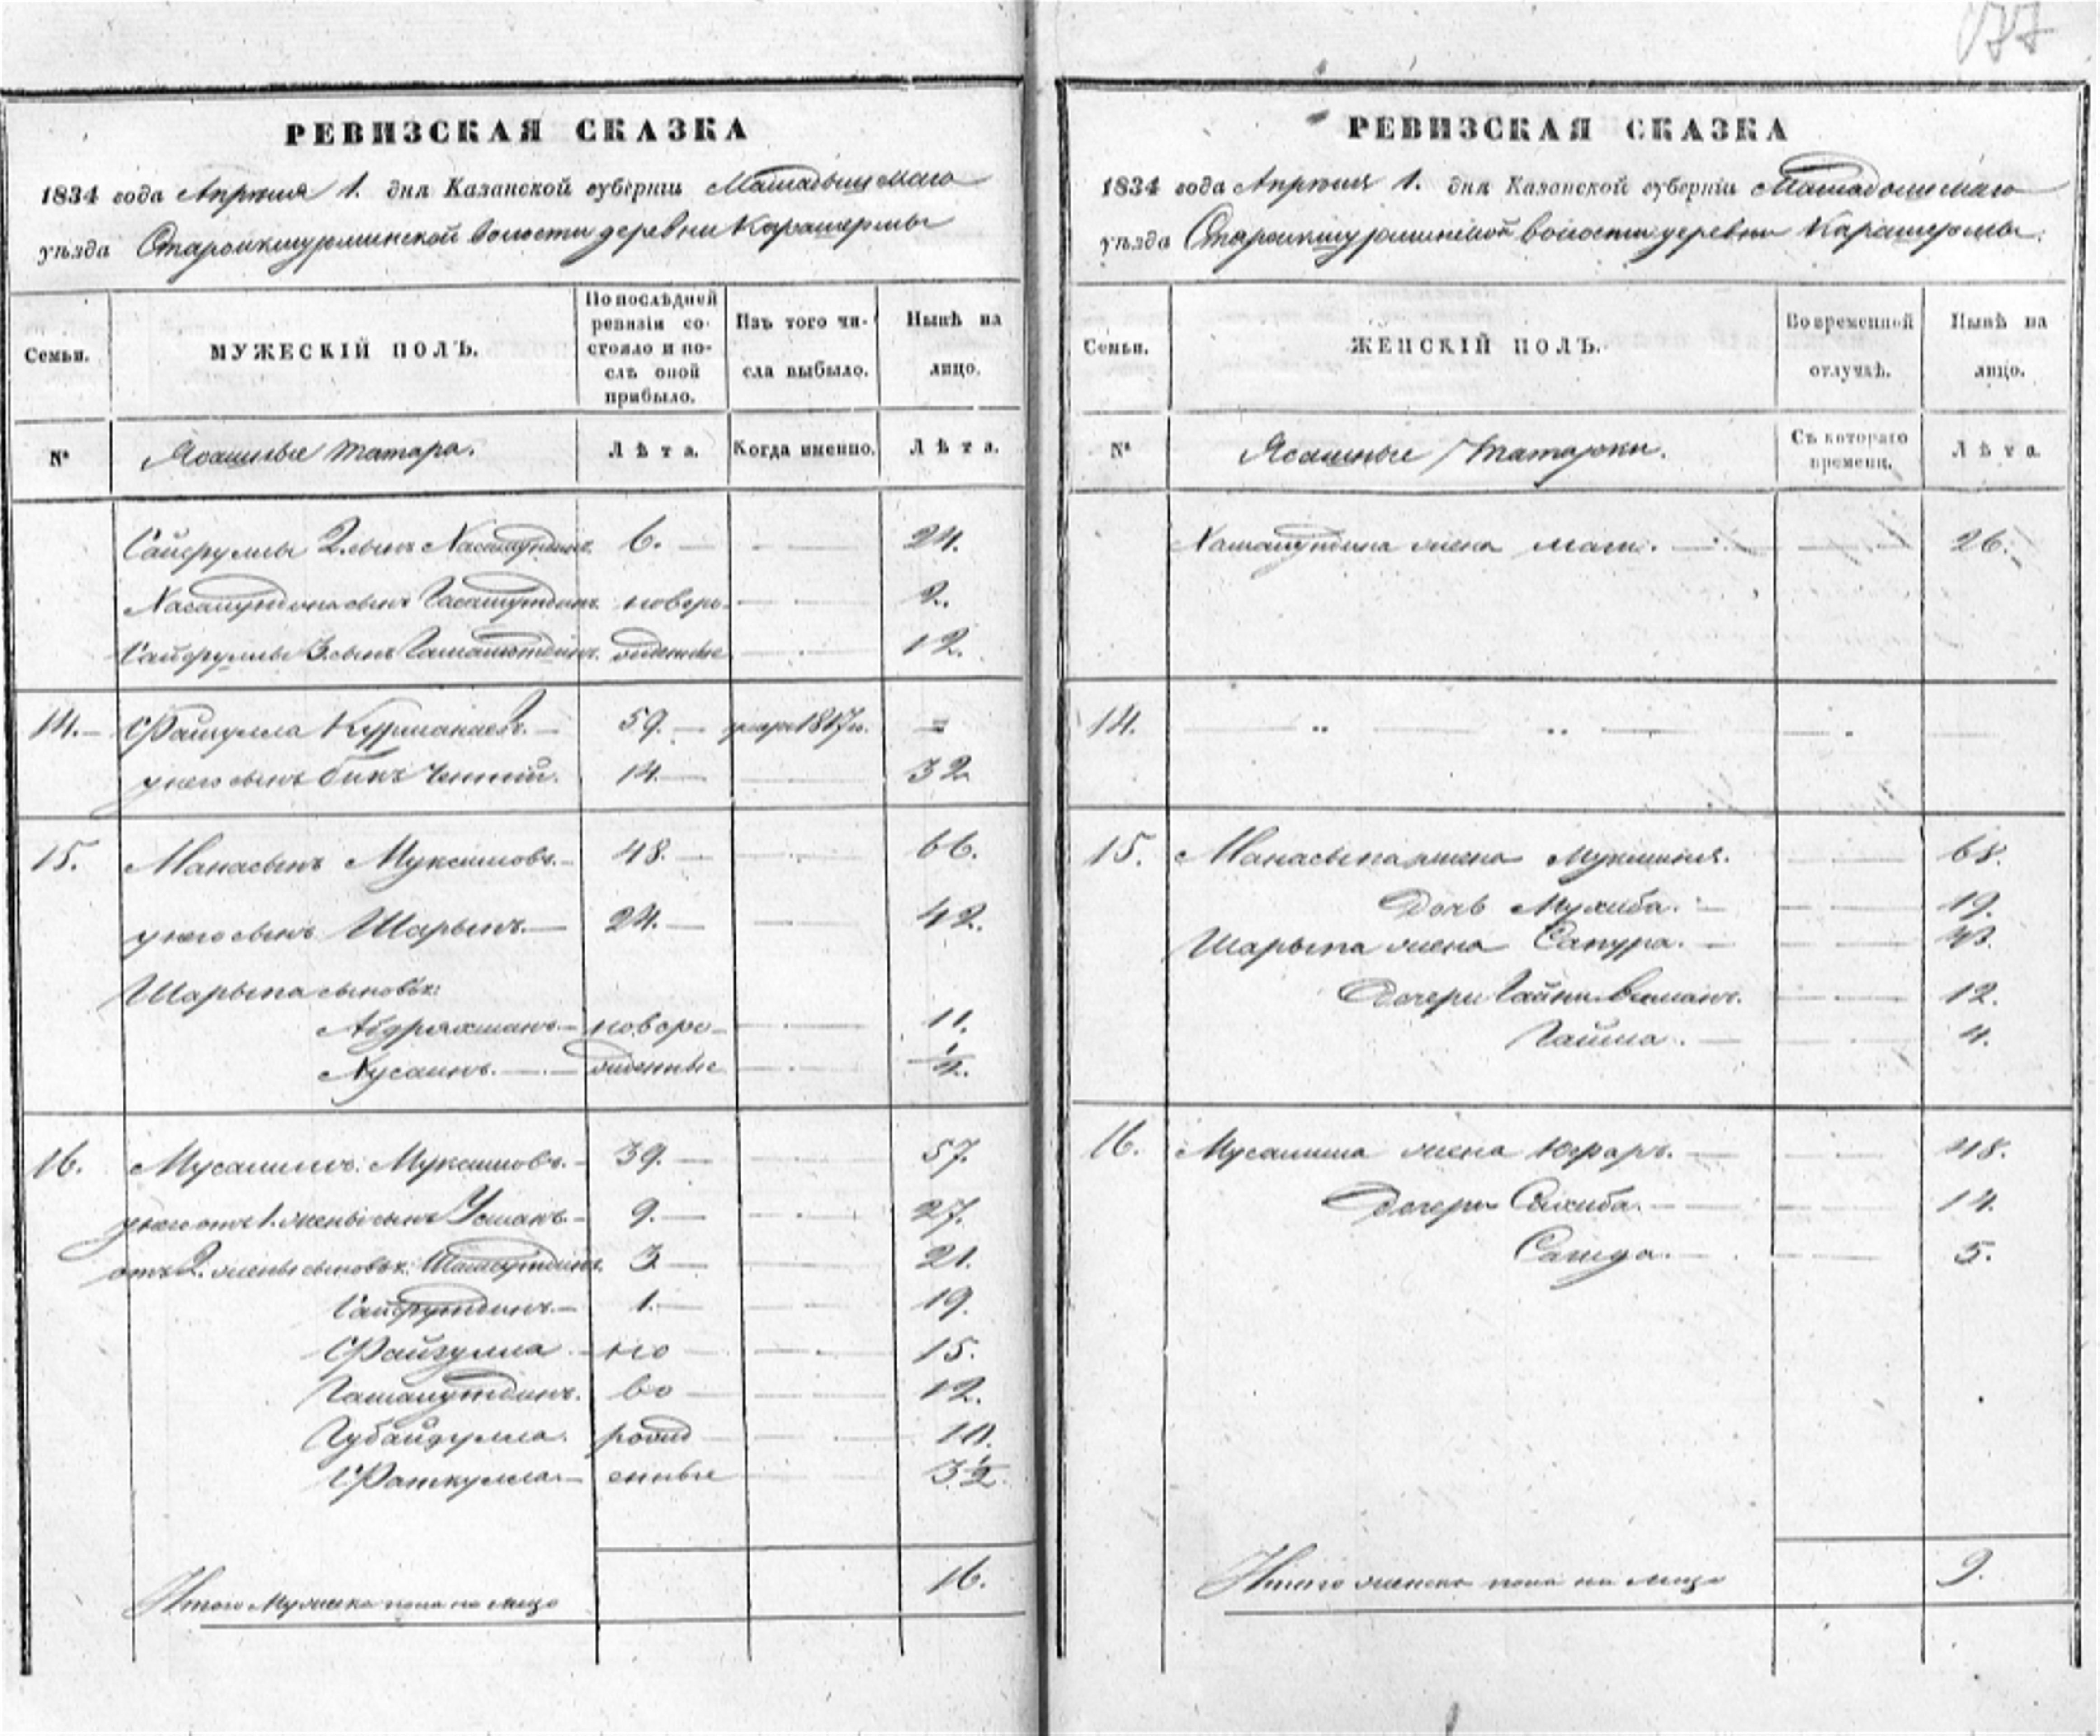 177
РЕВИЗСКАЯ СКАЗКА
1834 года Апреля 1. дня Казанской губерніи Мамадышскаго
уѣзда Староикшурминской волости деревни Карашермы
Семьи.
МУЖЕСКІЙ ПОЛЪ.
По послѣдней ревизіи состояло и послѣ оной прибыло.
Изъ того числа выбыло.
Нынѣ на лицо.
№
Ясашные татара.
Лѣта.
Когда именно.
Лѣта.
Сайфуллы 2. сынъ 6. 24.
сынъ новоро- 2.
Сайфуллы 3. сынъ жденные 12.
14. Файзулла Курманаевъ. 59. 1817 =
у него сынъ Бикъ 14. 32
15. Манасыпъ Муксимовъ. 48. 66.
у него сынъ Шарыпъ. 24. 42.
Шарыпа сыновья:
Абдряхманъ новоро- 11.
Хусаинъ. жденные 1/2.
16. Мусалимъ Муксимовъ. 39. 57.
у него отъ 1. жены сынъ Усманъ 9. 27.
отъ 2. жены сыновья: 3 21.
Сайфутдинъ 1. 19.
Файзулла но 15.
во 12.
Губайдулла. рожд 10.
Фаткулла енные 3 1/2
Итого мужеска пола на лицо 16.
РЕВИЗСКАЯ СКАЗКА
1834 года Апреля 1. дня Казанской губерніи Мамадышскаго
уѣзда Староикшурминской волости деревни Карашермы.
Семьи.
ЖЕНСКІЙ ПОЛЪ.
Во временной отлучкѣ.
Нынѣ на лицо.
№
Ясашные татарки.
Съ котораго времени.
Лѣта.
жена 26.
14.
15. Манасыпа жена 68.
Дочь Мухиба. 19.
Шарыпа жена Сапура. 43.
Дочери 12.
4.
16. Мусалима жена 48.
Дочери Сахиба. 14.
Сагида. 5.
Итого женска пола на лицо 9.